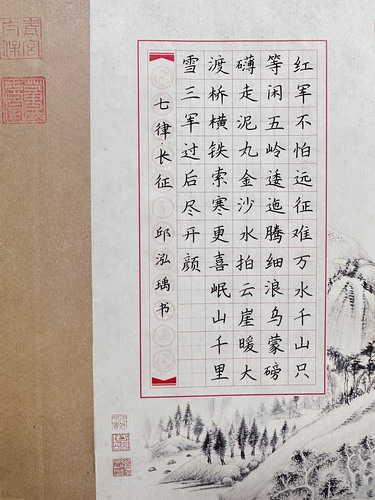 红军不怕远征难万水千山只
等闲五岭逶迤腾细浪乌蒙磅
礴走泥丸金沙水拍云崖暖大
渡桥横铁索寒更喜岷山千里
雪三军过后尽开颜
七律·长征 邱泓瑀书